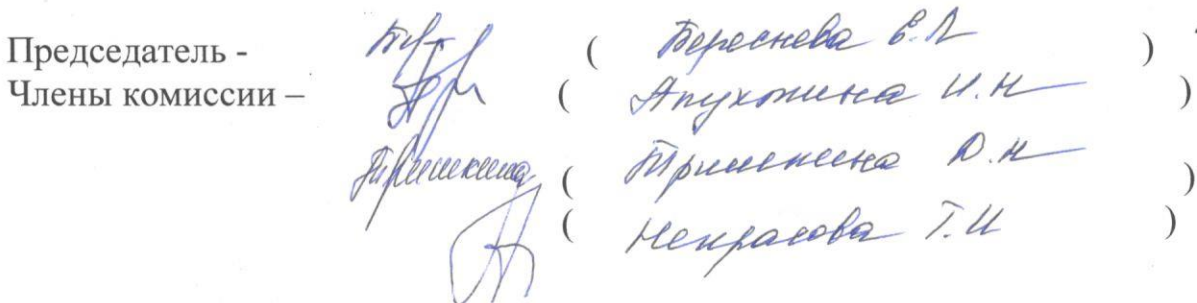 Председатель - ( Береснева Е.Л )
Члены комиссии – ( Апухтина И.Н )
Тришкина ( Тришкина О.Н )
( Некрасова Т.И )